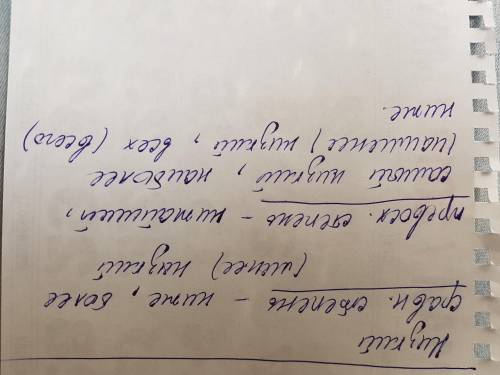 Низкий
сравн. степень - ниже, более
(менее) низкий
превосх. степень - нижайший,
самый низкий, наиболее
(наименее) низкий, всех (всего)
ниже.